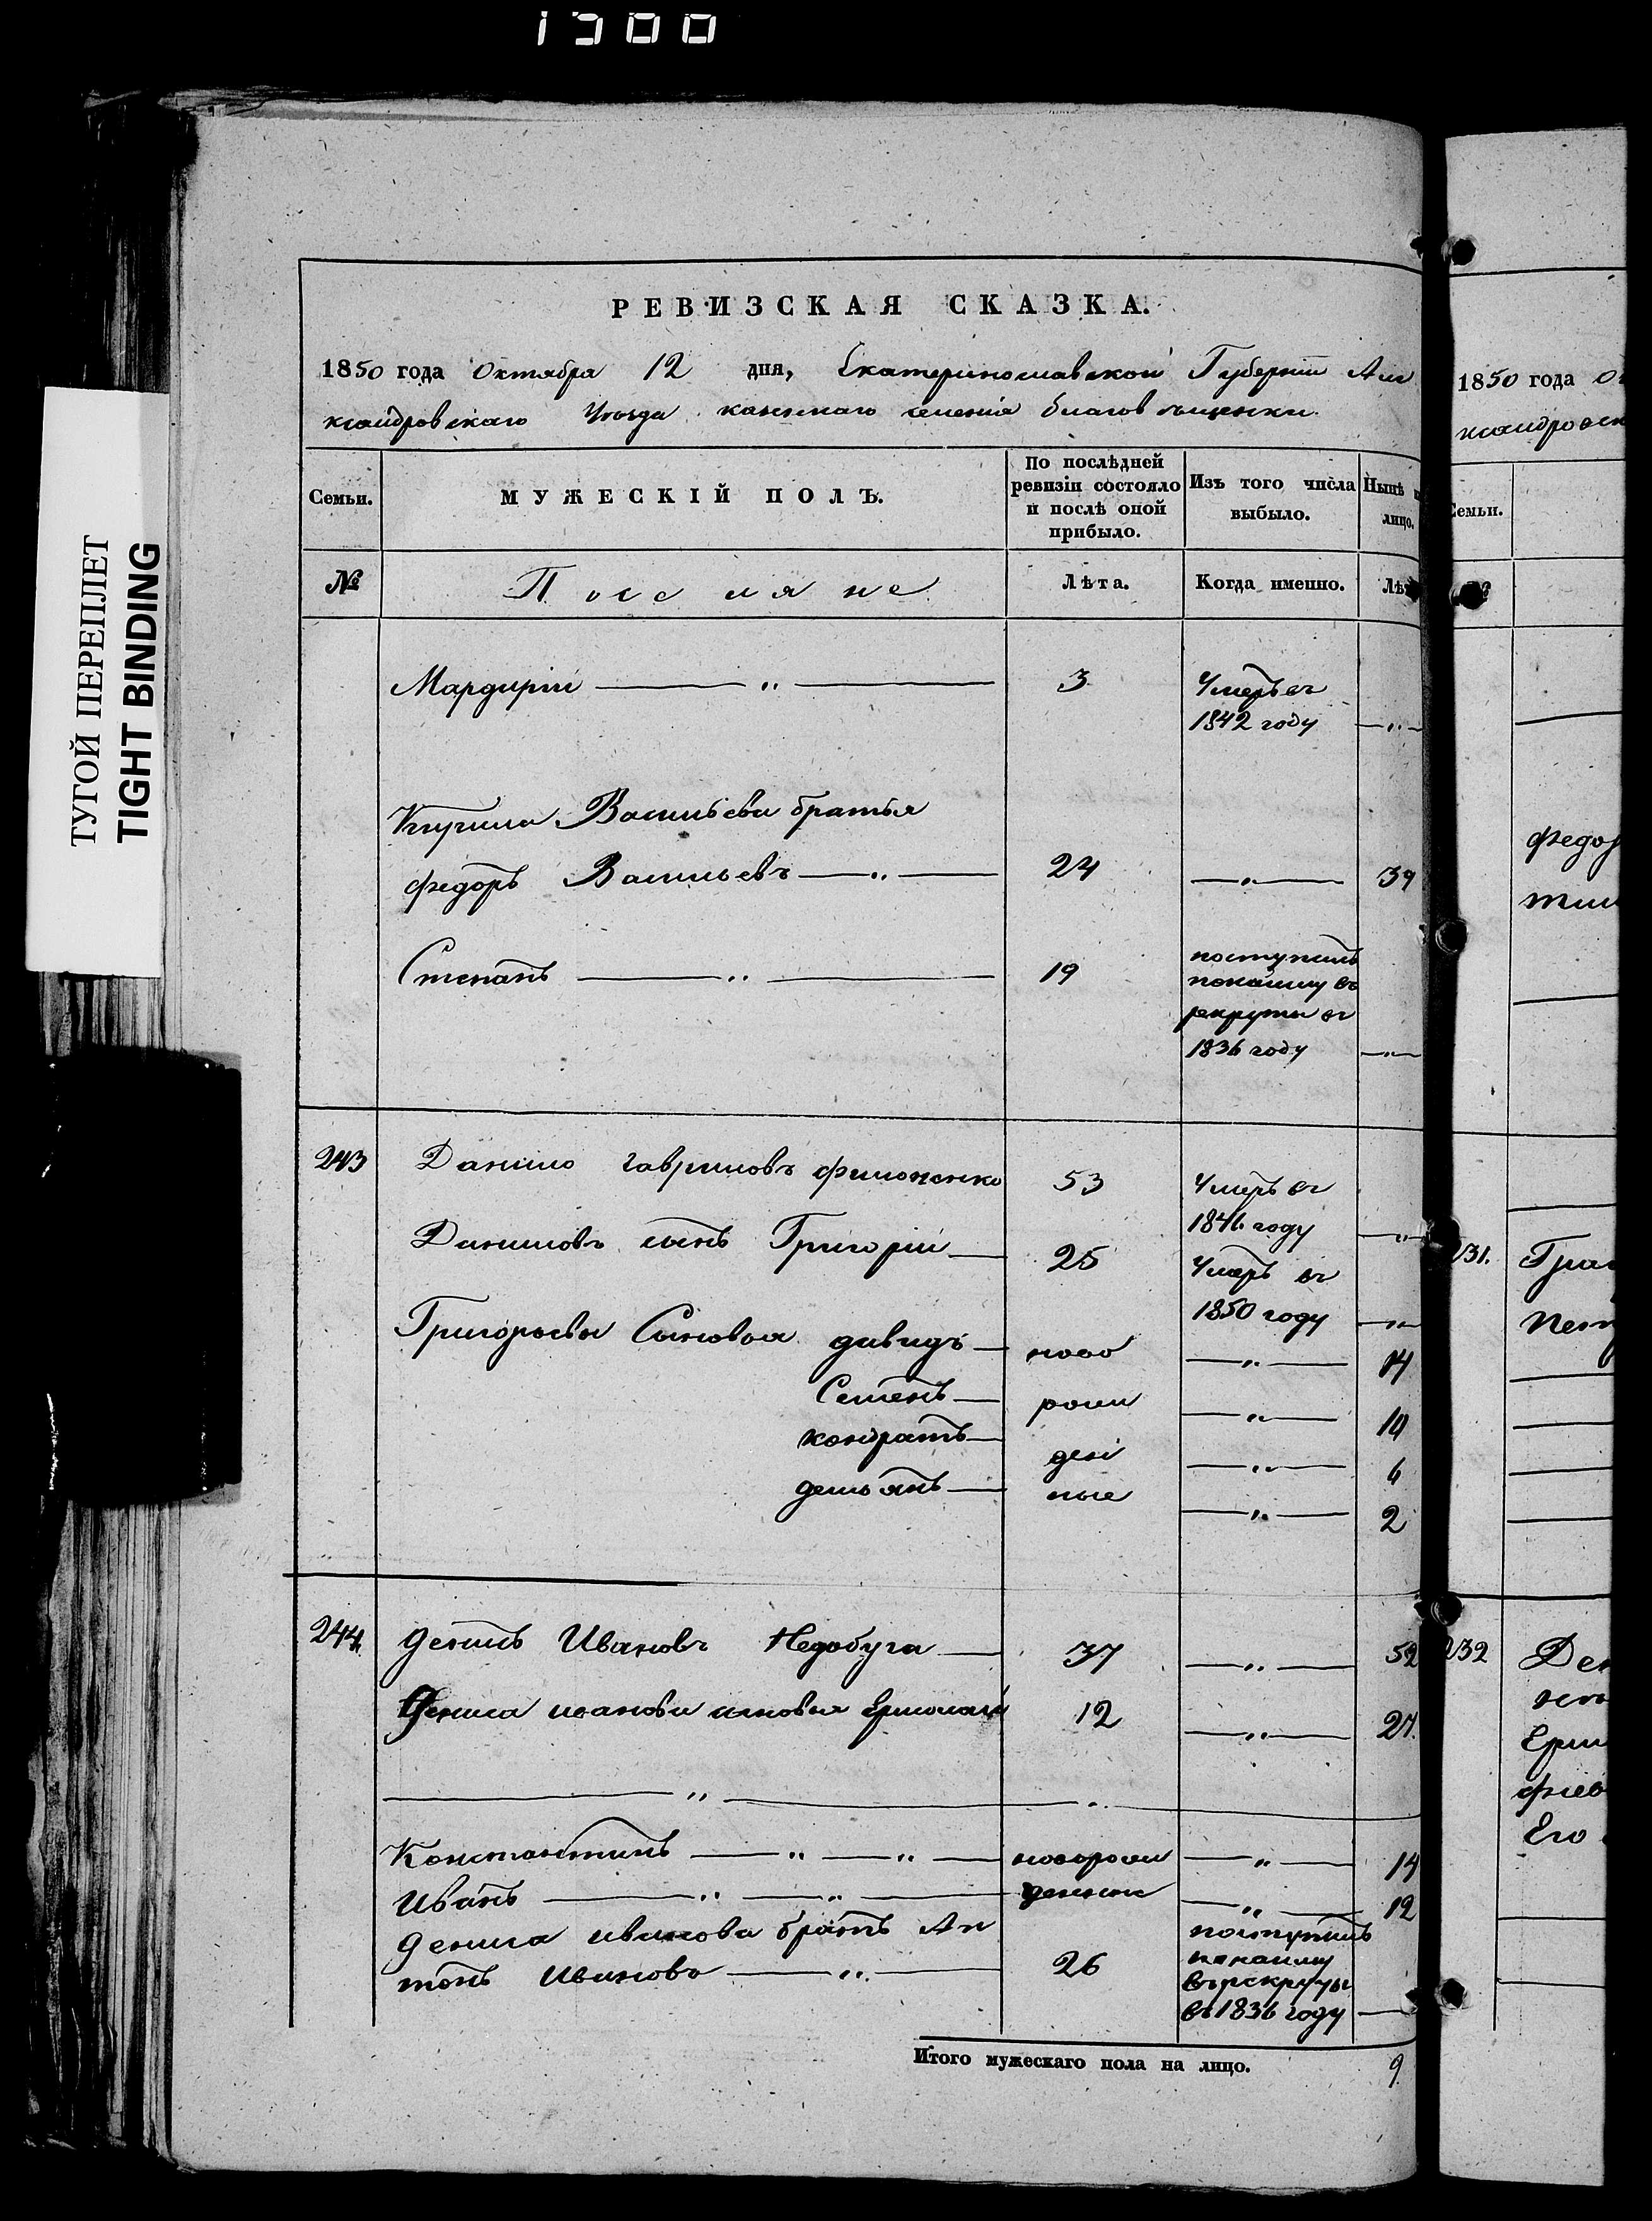 1300
ТУГОЙ ПЕРЕПЛЕТ
TIGHT BINDING
РЕВИЗСКАЯ СКАЗКА.
1850 года Октября 12 дня, Екатеринославской Губерніи Але
ксандровскаго Уезда казеннаго селенія благовещенки
Семьи. МУЖЕСКІЙ ПОЛЪ. По послѣдней ревизіи состояло и послѣ оной прибыло. Изъ того числа выбыло. Нынѣ лицо.
№ Поселяне Лѣта. Когда именно. Лѣт
Мардирій — „ — 3 Умеръ въ
1842 году — „ —
Кирила Васильева братья
федоръ Васильевъ — „ — 24 — „ — 39
Степанъ — „ — 19 поступилъ
понайму въ
рекруты въ
1836 году — „ —
243 Данило гавриловъ филоненко 53 Умеръ въ
1846 году — „
Даниловъ сынъ Григорій — 25 Умеръ въ
1850 году — „ —
Григорьевы Сыновья давидъ — ново — „ — 14
Семенъ — рож — „ — 10
кондратъ — ден — „ — 6
демьянъ — ные — „ — 2
244 денисъ Ивановъ Недобуга — 37 — „ — 52
Дениса иванова сыновья Ермолай 12 — „ — 27.
— „ — „
Константинъ — „ — „ — новорож — „ — 14
Иванъ — „ — „ — денные — „ — 12
дениса иванова братъ Ан
тонъ Ивановъ — „ — 26 поступилъ
понайму
въ рекруты
въ 1836 году —
Итого мужескаго пола на лицо. 9
1850 года О
ксандровск
Семьи.
№
федор
231.
232 Ден
Ерм
Его